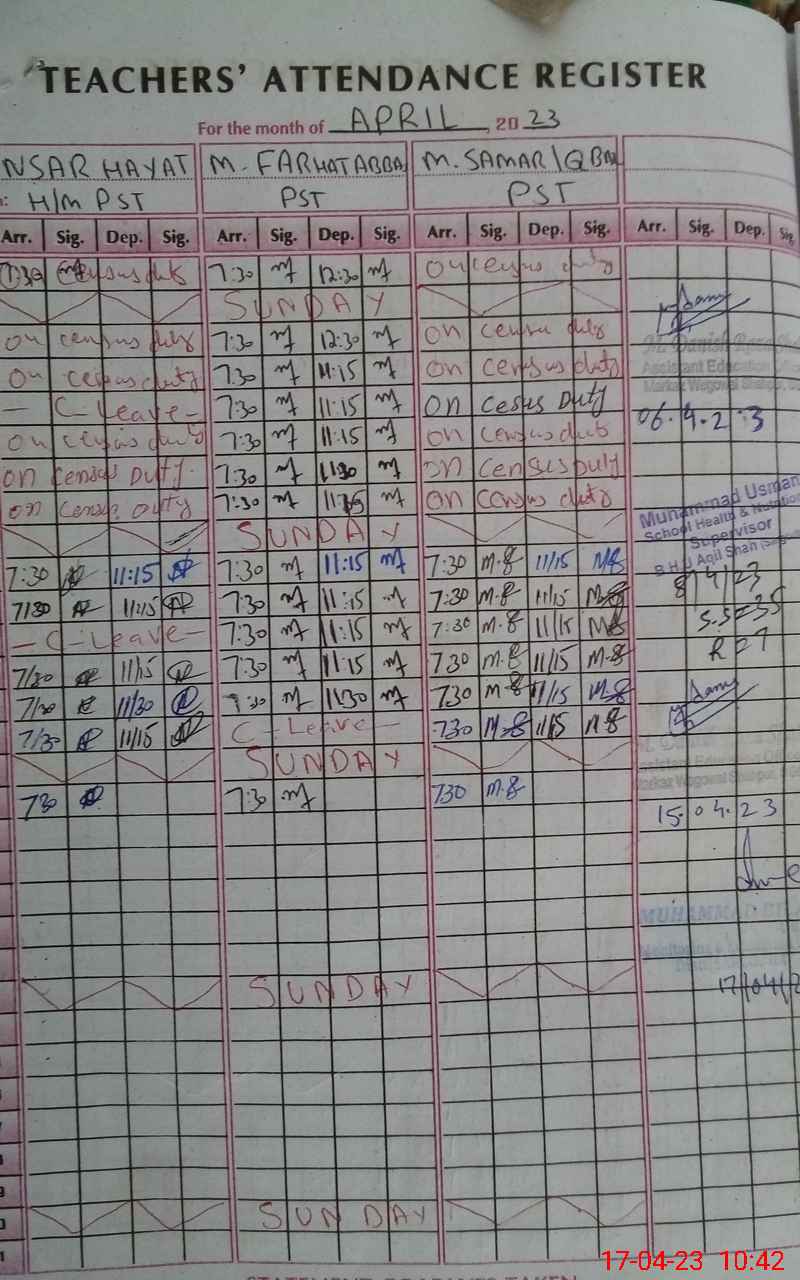 TEACHERS' ATTENDANCE REGISTER
For the month of APRIL, 2023
NSAR HAYAT M. FARHAT ABBA M. SAMAR IQBAL
H/M PST PST PST
Arr. Sig. Dep. Sig. Arr. Sig. Dep. Sig. Arr. Sig. Dep. Sig. Arr. Sig. Dep. Sig
7:30 census duty 7:30 12:30 on census duty
SUNDAY
on census duty 7:30 12:30 on census duty
on census duty 7:30 11:15 on census duty
Assistant Education
— C-Leave — 7:30 11:15 on Cesus Duty
06.4.23
on census duty 7:30 11:15 on census duty
on census Duty. 7:30 1130 on census Duty
on census duty 7:30 on census duty
Muhammad Usman
School Health & Nutrition
Supervisor
SUNDAY
7:30 11:15 7:30 11:15 7:30 M.S 11/15
8/4/23
7/30 11:15 7:30 11:15 7:30 M.S 11/15
S.S=35
— C-Leave — 7:30 11:15 7:30 M.S 11/15
7/30 11/15 7:30 11:15 730 M.S 11/15 M.S
7/30 11/30 7:30 1130 730 M.S 11/15
7/30 11/15 C-Leave — 730 M.S 11/15 M.S
SUNDAY
730 7:30 730 M.S
15.04.23
MUHAMMAD
SUNDAY
17/04/2
SUNDAY
17-04-23 10:42